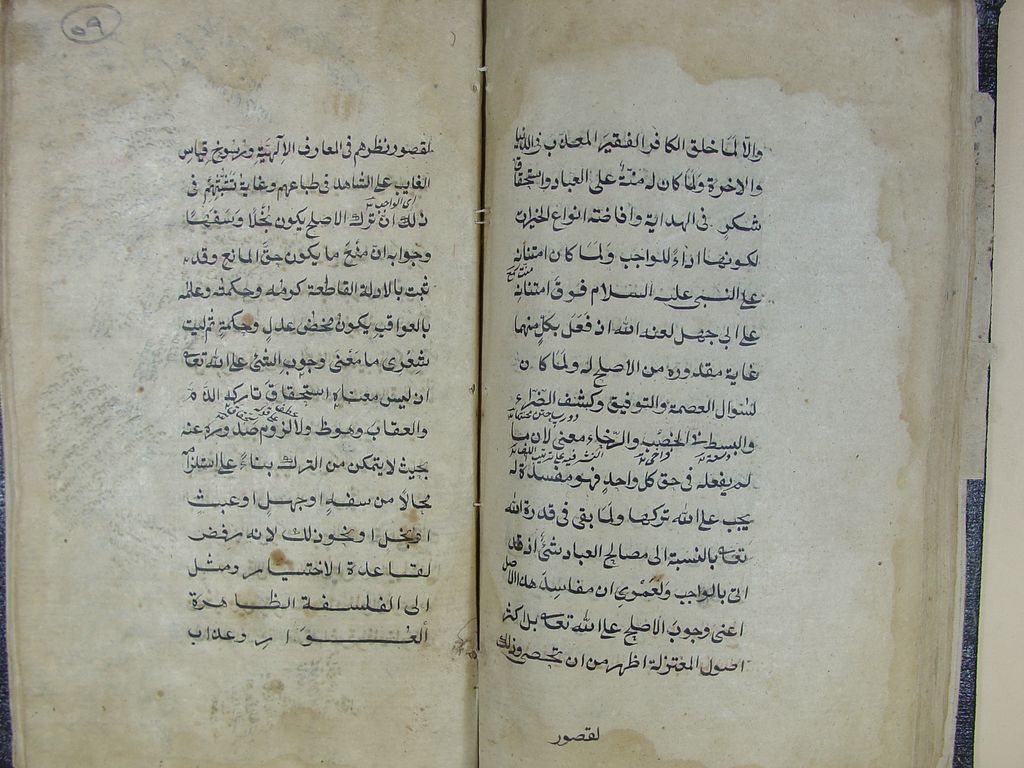 والا لما خلق الكافر الفقير المعذب فى الدنيا
والاخرة ولما كان له منة على العباد واستحقاق
شكر فى الهداية وافاضته انواع الخيرات
لكونها اداءً للواجب ولما كان امتنانه
على النبى عليه السلام فوق امتنانه
على ابى جهل لعنه الله اذ فعل بكل منهما
غاية مقدوره من الاصلح له ولما كان
لسؤال العصمة والتوفيق وكشف الضراء
والبسط فى الخصب والرخاء معنى لان ما
لم يفعله فى حق كل واحد فهو مفسدة له
يجب على الله تركها ولما بقى فى قدرة الله
تعالى بالنسبة الى مصالح العباد شئ اذ قد
اتى بالواجب ولعمرى ان مفاسد هذا الاصل
اعنى وجوب الاصلح على الله تعالى بل اكثر
اصول المعتزلة اظهر من ان تحصى وذلك
لقصور
٥٩
لقصور نظرهم فى المعارف الالهية ورسوخ قياس
الغايب على الشاهد فى طباعهم وغاية تشبثهم فى
اى الواجب
ذلك ان ترك الاصلح يكون بخلا وسفها
وجوابه ان منع ما يكون حق المانع وقد
ثبت بالادلة القاطعة كرمه وحكمته وعلمه
بالعواقب يكون محض عدل وحكمة ثم ليت
شعرى ما معنى وجوب الشئ على الله تعالى
اذ ليس معناه استحقاق تاركه الذم
والعقاب وهو ظ ولا لزوم صدوره عنه
بحيث لا يتمكن من الترك بناءً على استلزامه
محالا من سفه او جهل او عبث
او بخل او نحو ذلك لانه رفض
لقاعدة الاختيار وميل
الى الفلسفة الظاهرة
العوار وعذاب